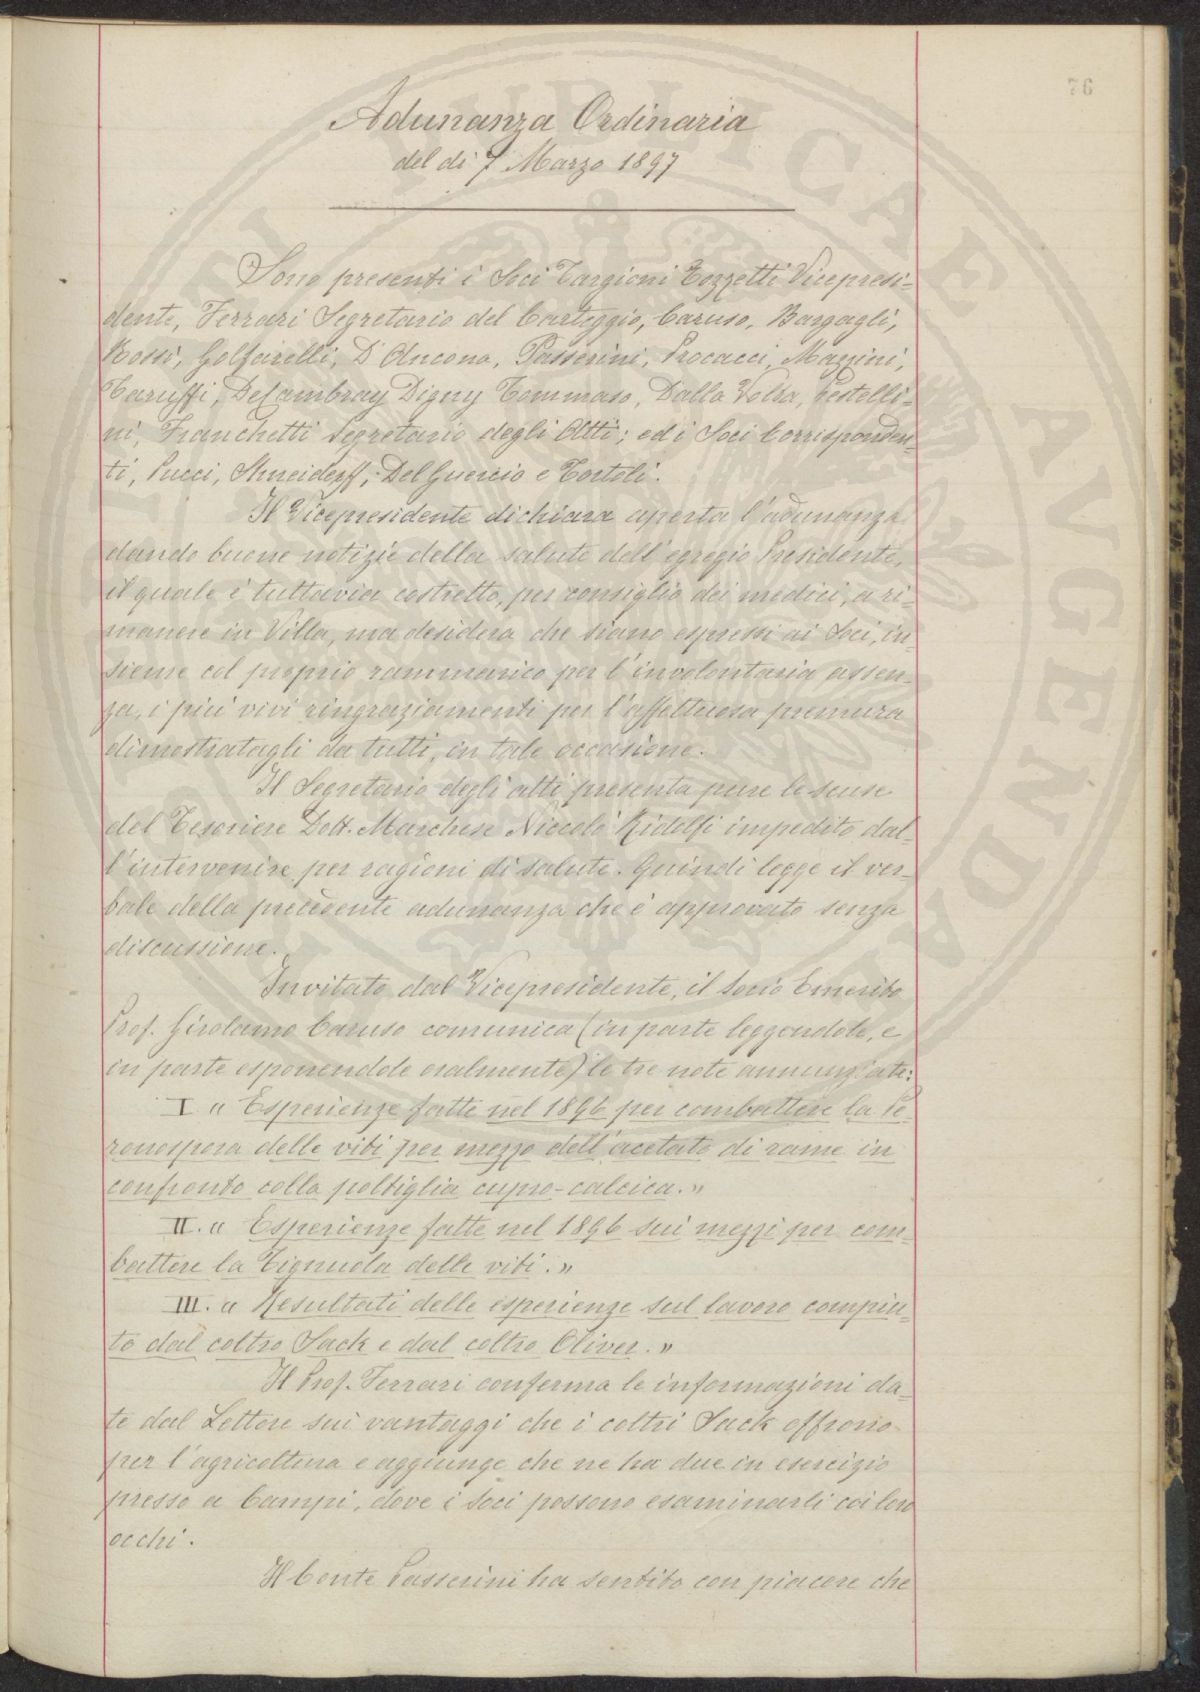 76
Adunanza Ordinaria
del dì 7 Marzo 1897
Sono presenti i Soci Targioni Tozzetti Vicepresi-
dente, Ferrari Segretario del Carteggio, Caruso, Bargagli,
Rossi, Golfarelli, D'Ancona, Passerini, Procacci, Mazzini,
Caruffi, DeCambray Digny Tommaso, Dalla Volta, Pestelli-
ni, Franchetti Segretario degli Atti; ed i Soci Corrisponden-
ti, Pucci, Shneiderff, Del Guercio e Tortoli.
Il Vicepresidente dichiara aperta l'adunanza
dando buone notizie della salute dell'egregio Presidente,
il quale è tuttavia costretto, per consiglio dei medici, a ri-
manere in Villa, ma desidera che siano espressi ai Soci, in-
sieme col proprio rammarico per l'involontaria assen-
za, i più vivi ringraziamenti per l'affettuosa premura
dimostratagli da tutti, in tale occasione.
Il Segretario degli atti presenta pure le scuse
del Tesoriere Dott. Marchese Niccolò Ridolfi impedito dal-
l'intervenire per ragioni di salute. Quindi legge il ver-
bale della precedente adunanza che è approvato senza
discussione.
Invitato dal Vicepresidente, il Socio Emerito
Prof. Girolamo Caruso comunica (in parte leggendole, e
in parte esponendole oralmente) le tre note annunziate:
I "Esperienze fatte nel 1896 per combattere la Pe-
ronospora delle viti per mezzo dell'acetato di rame in
confronto colla poltiglia cupro-calcica."
II. "Esperienze fatte nel 1896 sui mezzi per com-
battere la Tignuola delle viti."
III. "Resultati delle esperienze sul lavoro compiu-
to dal coltro Sack e dal coltro Oliver."
Il Prof. Ferrari conferma le informazioni da-
te dal Lettore sui vantaggi che i coltri Sack offrono
per l'agricoltura e aggiunge che ne ha due in esercizio
presso a Campi, dove i Soci possono esaminarli coi loro
occhi.
Il Conte Passerini ha sentito con piacere che